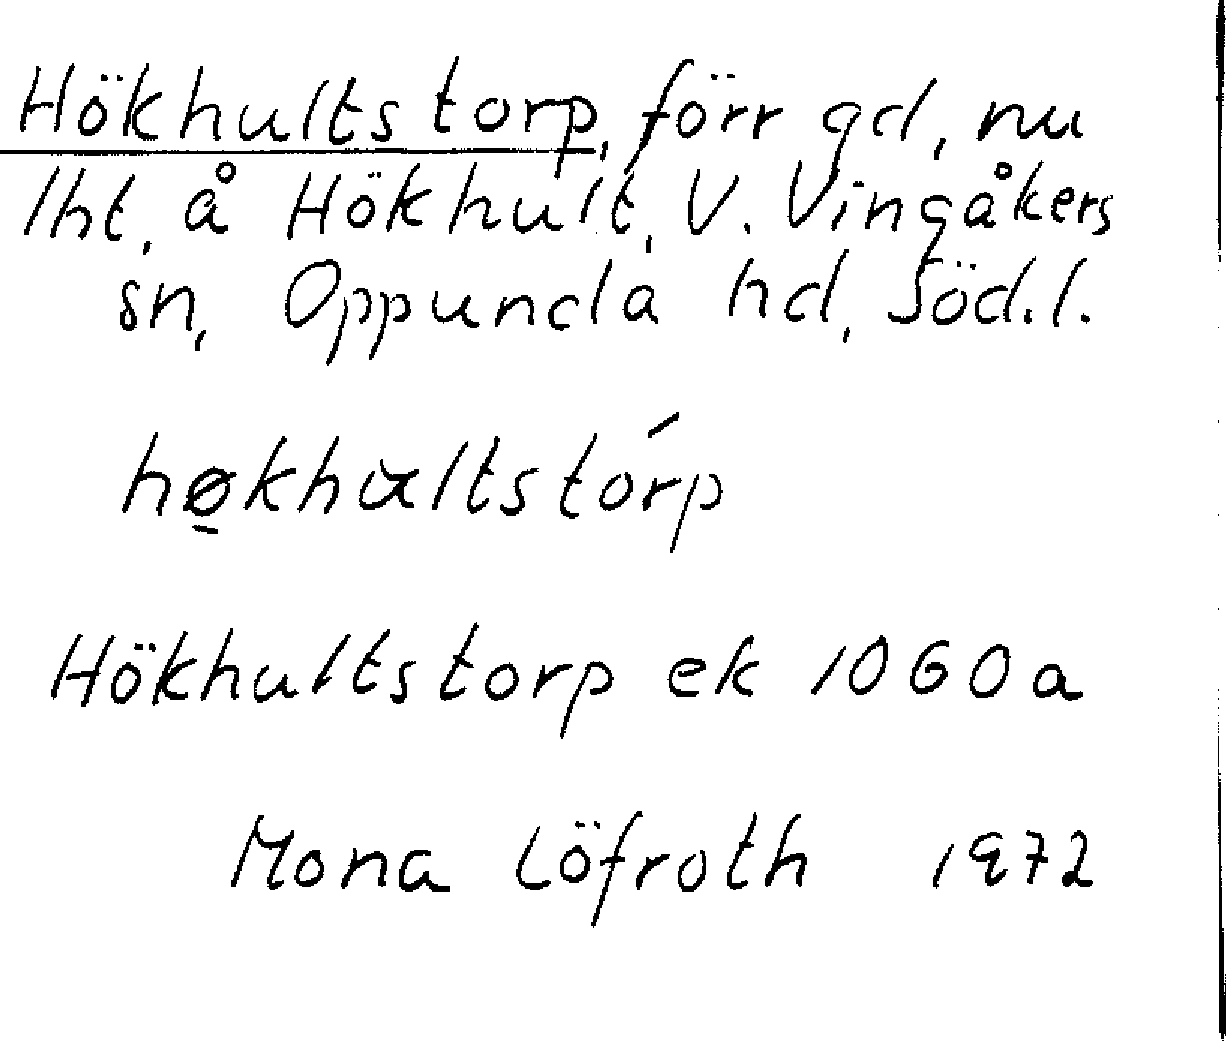 Hökhultstorp, förr gd, nu
lht, å Hökhult, V. Vingåkers
sn, Oppunda hd, Söd.l.
hø̱khultstórp
Hökhultstorp ek 1060a
Mona Löfroth 1972